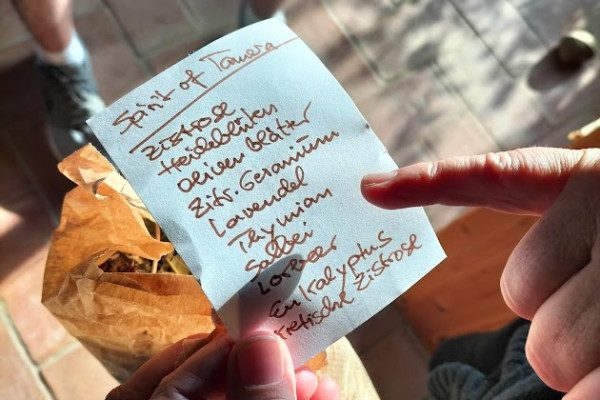 Spirit of Tamera
Zistrose
Heideblüten
Oliven blätter
Zitr. Geranium
Lavendel
Thymian
Salbei
Lorbeer
Eukalyptus
retische Zistrose